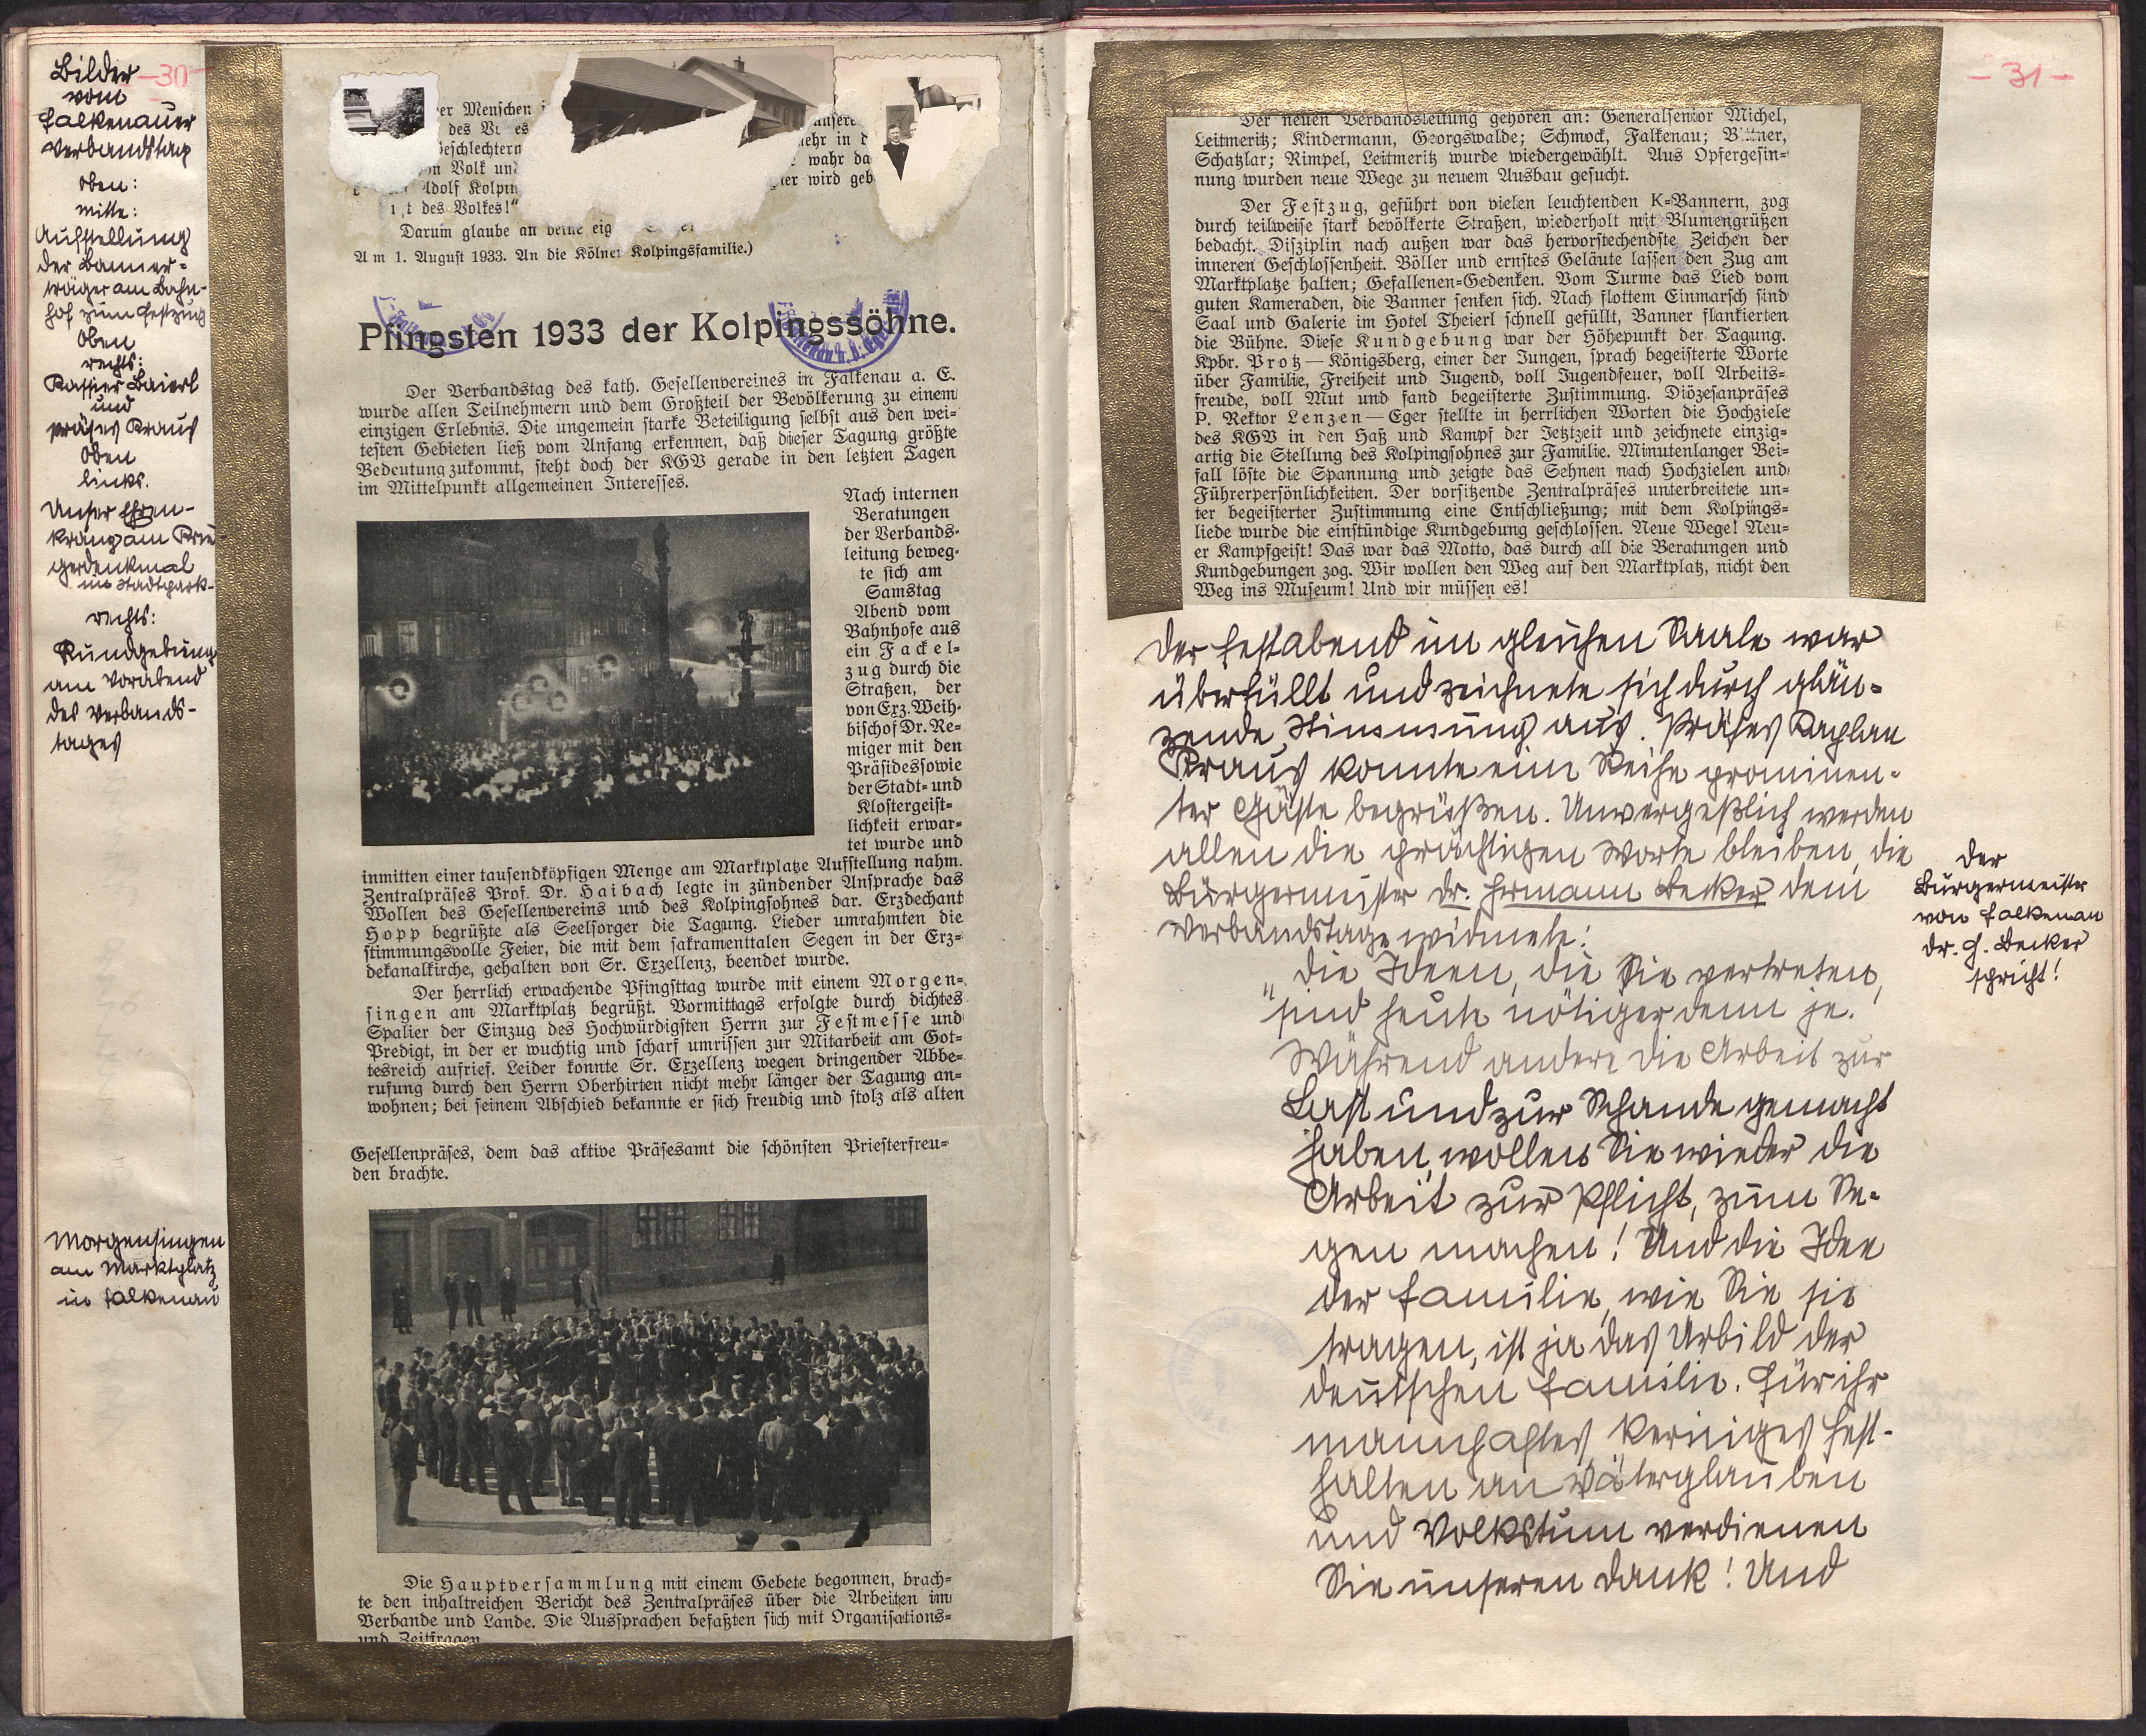 -30-
Bilder
vom
Falkenauer
Verbandstag
Oben:
mitte:
Aufstellung
der Banner-
träger am Bahn-
hof zum Festzug
Oben
rechts:
Kassier Baierl
und
Präses Kraus
Oben
links.
Unser Ehren-
kranz am Krie-
gerdenkmal
im Stadtpark-
rechts:
Kundgebung
am Vorabend
des Verbands-
tages
Morgensingen
am Marktplatz
in Falkenau
er Menschen
des
Geschlechtern
Volk
Adolf Kolpin
t des Volkes!“
unsere
ehr in
wahr da
er wird geb
Darum glaube an deine eig
Am 1. August 1933. An die Kölner Kolpingsfamilie.)
Pfingsten 1933 der Kolpingssöhne.
Der Verbandstag des kath. Gesellenvereines in Falkenau a. E.
wurde allen Teilnehmern und dem Großteil der Bevölkerung zu einem
einzigen Erlebnis. Die ungemein starke Beteiligung selbst aus den wei-
testen Gebieten ließ vom Anfang erkennen, daß dieser Tagung größte
Bedeutung zukommt, steht doch der KGV gerade in den letzten Tagen
im Mittelpunkt allgemeinen Interesses.
Nach internen
Beratungen
der Verbands-
leitung beweg-
te sich am
Samstag
Abend vom
Bahnhofe aus
ein Fackel-
zug durch die
Straßen, der
von Erz. Weih-
bischof Dr. Re-
miger mit den
Präsides sowie
der Stadt- und
Klostergeist-
lichkeit erwar-
tet wurde und
inmitten einer tausendköpfigen Menge am Marktplatze Aufstellung nahm.
Zentralpräses Prof. Dr. Haibach legte in zündender Ansprache das
Wollen des Gesellenvereins und des Kolpingsohnes dar. Erzdechant
Hopp begrüßte als Seelsorger die Tagung. Lieder umrahmten die
stimmungsvolle Feier, die mit dem sakramenttalen Segen in der Erz-
dekanalkirche, gehalten von Sr. Exzellenz, beendet wurde.
Der herrlich erwachende Pfingsttag wurde mit einem Morgen-
singen am Marktplatz begrüßt. Vormittags erfolgte durch dichtes
Spalier der Einzug des Hochwürdigsten Herrn zur Festmesse und
Predigt, in der er wuchtig und scharf umrissen zur Mitarbeit am Got-
tesreich aufrief. Leider konnte Sr. Exzellenz wegen dringender Abbe-
rufung durch den Herrn Oberhirten nicht mehr länger der Tagung an-
wohnen; bei seinem Abschied bekannte er sich freudig und stolz als alten
Gesellenpräses, dem das aktive Präsesamt die schönsten Priesterfreu-
den brachte.
Die Hauptversammlung mit einem Gebete begonnen, brach-
te den inhaltreichen Bericht des Zentralpräses über die Arbeiten im
Verbande und Lande. Die Aussprachen befaßten sich mit Organisations-
und Zeitfragen
-31-
Der neuen Verbandsleitung gehören an: Generalsenior Michel,
Leitmeritz; Kindermann, Georgswalde; Schmock, Falkenau; Bittner,
Schatzlar; Rimpel, Leitmeritz wurde wiedergewählt. Aus Opfergesin-
nung wurden neue Wege zu neuem Ausbau gesucht.
Der Festzug, geführt von vielen leuchtenden K-Bannern, zog
durch teilweise stark bevölkerte Straßen, wiederholt mit Blumengrüßen
bedacht. Disziplin nach außen war das hervorstechendste Zeichen der
inneren Geschlossenheit. Böller und ernstes Geläute lassen den Zug am
Marktplatze halten; Gefallenen-Gedenken. Vom Turme das Lied vom
guten Kameraden, die Banner senken sich. Nach flottem Einmarsch sind
Saal und Galerie im Hotel Theierl schnell gefüllt, Banner flankierten
die Bühne. Diese Kundgebung war der Höhepunkt der Tagung.
Kpbr. Protz — Königsberg, einer der Jungen, sprach begeisterte Worte
über Familie, Freiheit und Jugend, voll Jugendfeuer, voll Arbeits-
freude, voll Mut und fand begeisterte Zustimmung. Diözesanpräses
P. Rektor Lenzen — Eger stellte in herrlichen Worten die Hochziele
des KGV in den Haß und Kampf der Jetztzeit und zeichnete einzig-
artig die Stellung des Kolpingsohnes zur Familie. Minutenlanger Bei-
fall löste die Spannung und zeigte das Sehnen nach Hochzielen und
Führerpersönlichkeiten. Der vorsitzende Zentralpräses unterbreitete un-
ter begeisterter Zustimmung eine Entschließung; mit dem Kolpings-
liede wurde die einstündige Kundgebung geschlossen. Neue Wege! Neu-
er Kampfgeist! Das war das Motto, das durch all die Beratungen und
Kundgebungen zog. Wir wollen den Weg auf den Marktplatz, nicht den
Weg ins Museum! Und wir müssen es!
Der Festabend im gleichen Saale war
überfüllt und zeichnete sich durch glän-
zende Stimmung aus. Präses Kaplan
Kraus konnte eine Reihe prominen-
ter Gäste begrüßen. Unvergeßlich werden
allen die prächtigen Worte bleiben, die
Bürgermeister Dr. Hermann Becker dem
Verbandstage widmete:
„Die Ideen, die Sie vertreten,
sind heute nötiger denn je.
Während andere die Arbeit zur
Last und zur Schande gemacht
haben, wollen Sie wieder die
Arbeit zur Pflicht, zum Se-
gen machen! Und die Idee
der Familie, wie Sie sie
tragen, ist ja das Urbild der
deutschen Familie. Für ihr
mannhaftes kerniges Fest-
halten an Väterglauben
und Volkstum verdienen
Sie unseren Dank! Und
Der
Bürgermeister
von Falkenau
Dr. H. Becker
spricht!